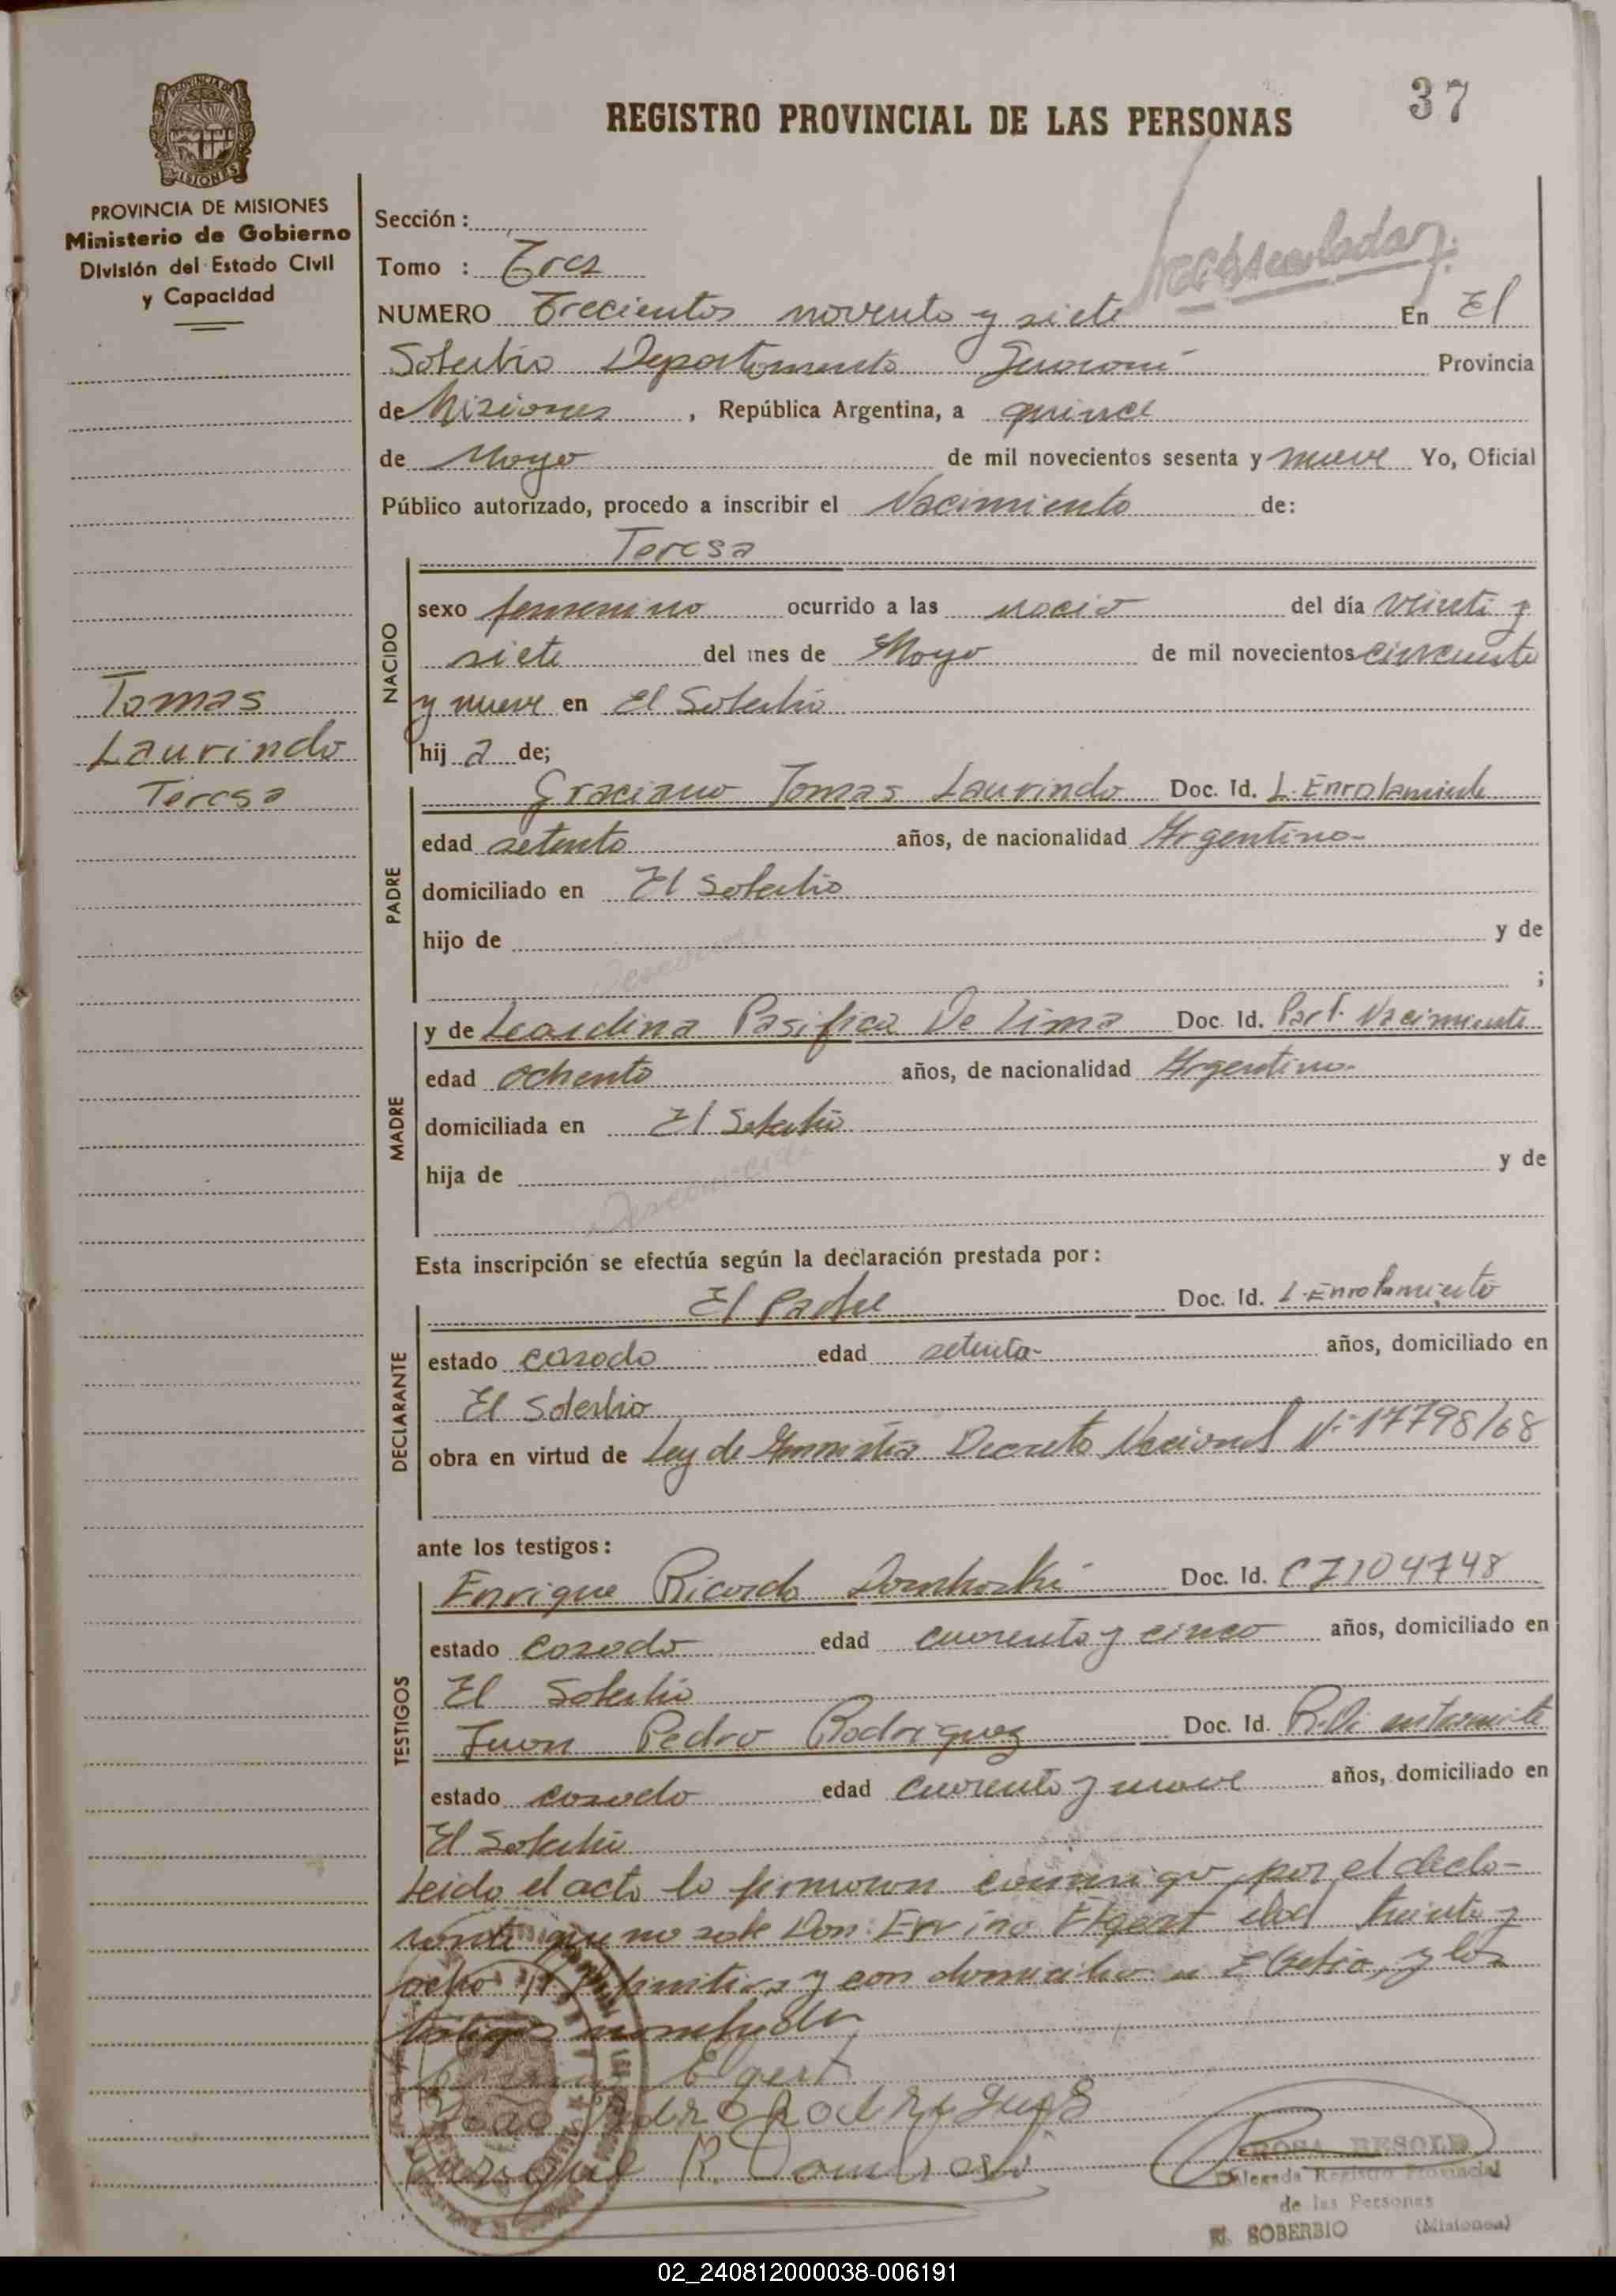 37
REGISTRO PROVINCIAL DE LAS PERSONAS
PROVINCIA DE MISIONES
Ministerio de Gobierno
División del Estado Civil
y Capacidad
Sección :
Tomo : Tres
NUMERO Trecientos noventa y siete En El
Soberbio Departamento Guaraní Provincia
de Misiones , República Argentina, a quince
de Mayo de mil novecientos sesenta y nueve Yo, Oficial
Público autorizado, procedo a inscribir el Nacimiento de:
Teresa
NACIDO
sexo femenino ocurrido a las nacio del día veinti y
siete del mes de Mayo de mil novecientos cincuenta
y nueve en El Soberbio
hij a de;
Tomas
Laurindo
Teresa
PADRE
Graciano Tomas Laurindo Doc. Id. L. Enrolamiento
edad setenta años, de nacionalidad Argentino-
domiciliado en El Soberbio
hijo de y de
Desconoce
;
MADRE
y de Leordina Pasifica De Lima Doc. Id. Part. Nacimiento
edad ochenta años, de nacionalidad Argentina-
domiciliada en El Soberbio
hija de y de
Desconocido
Esta inscripción se efectúa según la declaración prestada por :
DECLARANTE
El Padre Doc. Id. L. Enrolamiento
estado casado edad setenta- años, domiciliado en
El Soberbio
obra en virtud de Ley de Amnistia Decreto Nacional N: 17798/68
ante los testigos :
TESTIGOS
Enrique Ricardo Doc. Id. C7104748
estado casado edad cuarenta y cinco años, domiciliado en
El Soberbio
Juan Pedro Rodriguez Doc. Id.
estado casado edad cuarenta y nueve años, domiciliado en
El Soberbio
Leido el acta lo firmaron conmigo por el decla-
rante que no sabe Don: Ervino Elgert edad treinta y
ocho y con domicilio en El Soberbio, y los
testigos nombrados
Elgert
Pedro Rodrigues
Enrique R.
ROSA RESOLD
Delegada Registro Provincial
de las Personas
EL SOBERBIO (Misiones)
02_240812000038-006191